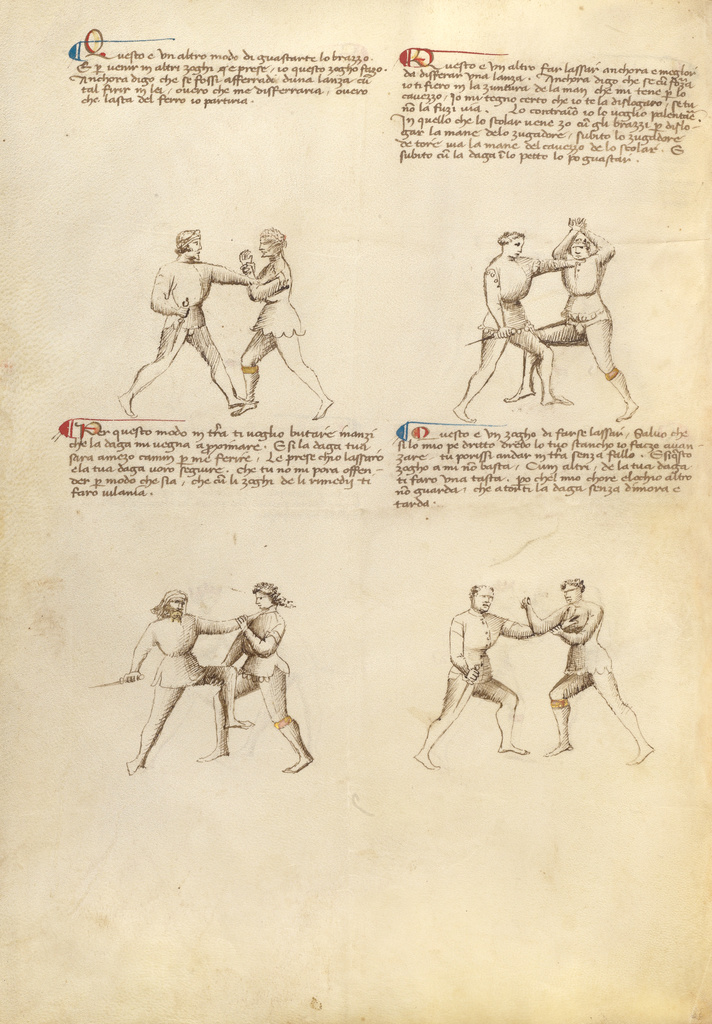 Questo e un altro modo di guastarte lo brazzo.
E p venir in altri zoghi e prese, io questo zogho fazo.
Anchora digo che se fossi afferrado duna lanza cū
tal firir in lei, overo che me disferraria, overo
che lasta del ferro io partiria.
Questo e un altro far lassar anchora e meglior
da disferar una lanza. Anchora digo che se cū forza
io ti fiero in la zuntura de la man che mi tene p lo
cavezzo, Io mi tegno certo che io te la dislogarò, se tu
nō la fuzi via. Lo contrario io lo voglio palentar.
In quello che lo scolar vene zo cū gli brazzi p dislo-
gar la mane delo zugadore, subito lo zugadore
de tore via la mane del cavezzo de lo scolar. E
subito cū la daga ī lo petto lo po guastar.
Per questo modo in t̄ra ti voglio butare inanzi
che la daga mi vegna aproximare. E si la daga tua
sara amezo camin p me ferire, Le prese ch'io lassarò
e la tua daga vorò seguire. che tu no mi porà offen-
der p modo che sia, che cū li zoghi de li rimedij ti
farò vilania.
Questo e un zogho di farse lassar, Salvo che
si lo mio pe dritto dredo lo tuo stancho io fazo avan-
zare tu porissi andar in t̄ra senza fallo. E si questo
zogho a mi nō basta, Cum altri, de la tua daga
ti farò una tasta. po chel mio chore e lochio altro
nō guarda, che a torti la daga senza dimora e
tarda.